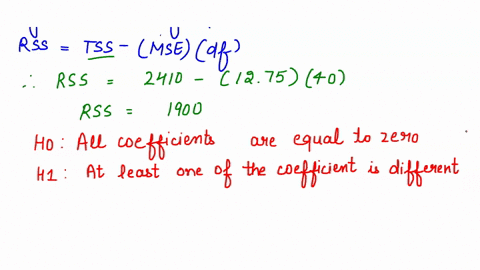 RSS = TSS - (MSE)(df)
∴ RSS = 2410 - (12.75)(40)
RSS = 1900
H0: All coefficients are equal to zero
H1: At least one of the coefficient is different